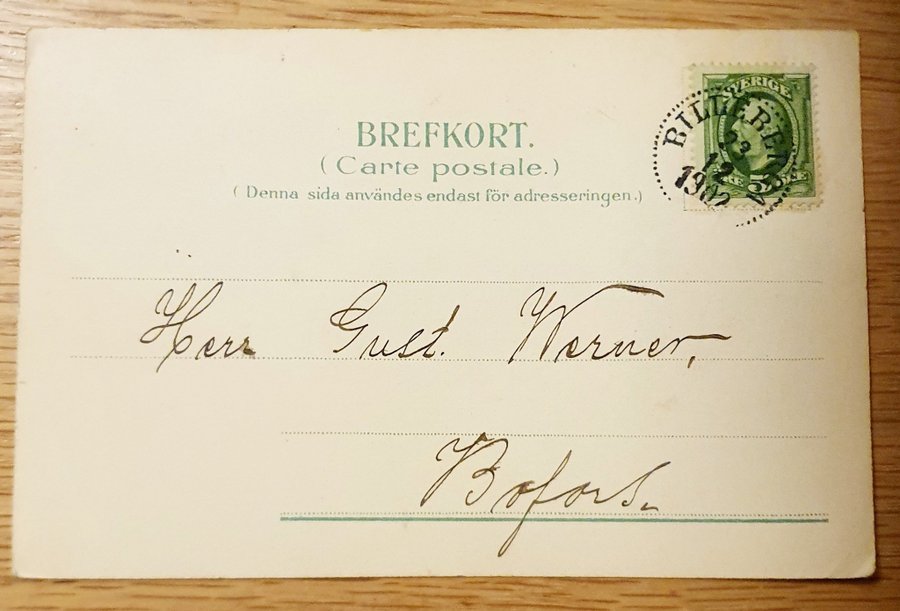 BREFKORT.
(Carte postale.)
(Denna sida användes endast för adresseringen.)
SVERIGE
BILLEBERGA
23
12
1902
5
Herr Gust. Werner,
Bofors.